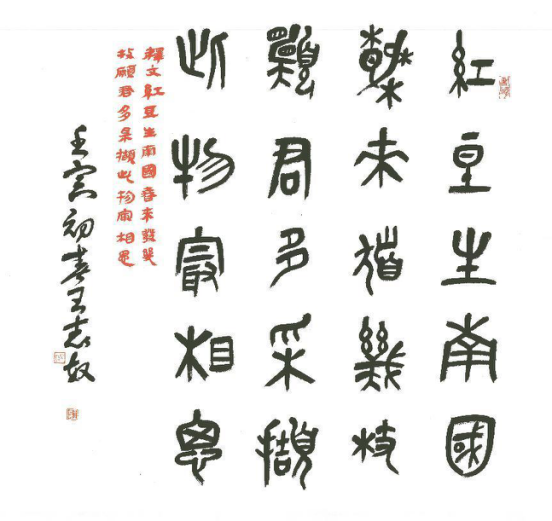 紅豆生南國
春來發幾枝
願君多采擷
此物最相思
釋文紅豆生南國春來發幾
枝願君多采擷此物最相思
壬寅初春王志